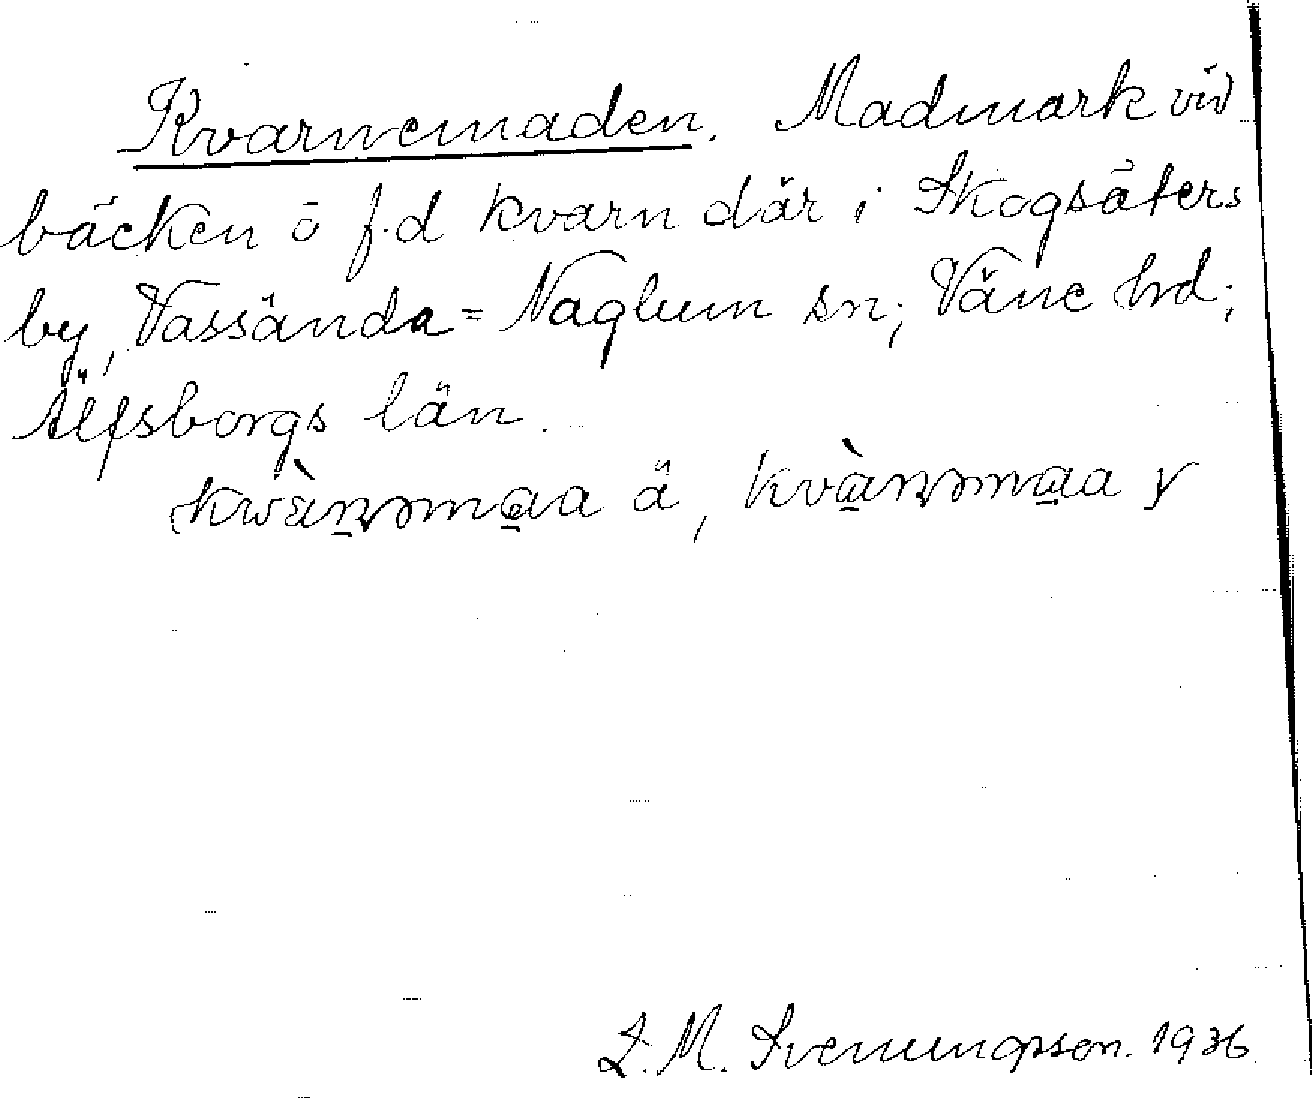 Kvarnemaden. Madmark vid
bäcken ō f.d kvarn där i Skogsäters
by, Vassända=Naglum sn; Väne hd;
Älfsborgs län.
ä, y
L.M. Svenungsson. 1936